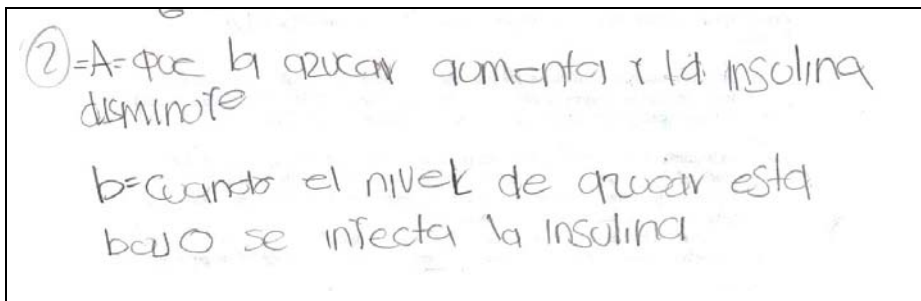 2=A=que la azucar aumenta y la insolina
disminoye
b=cuando el nivel de azucar esta
bajo se infecta la insulina